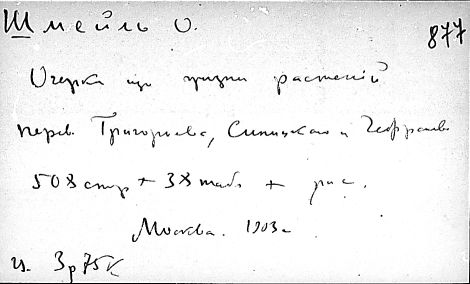 Шмейль О.
877
Очерки из жизни растений
перев. Григорьева, Синицкого и
508 стр + 38 табл + рис.
Москва. 1903 г
ц. 3р75к